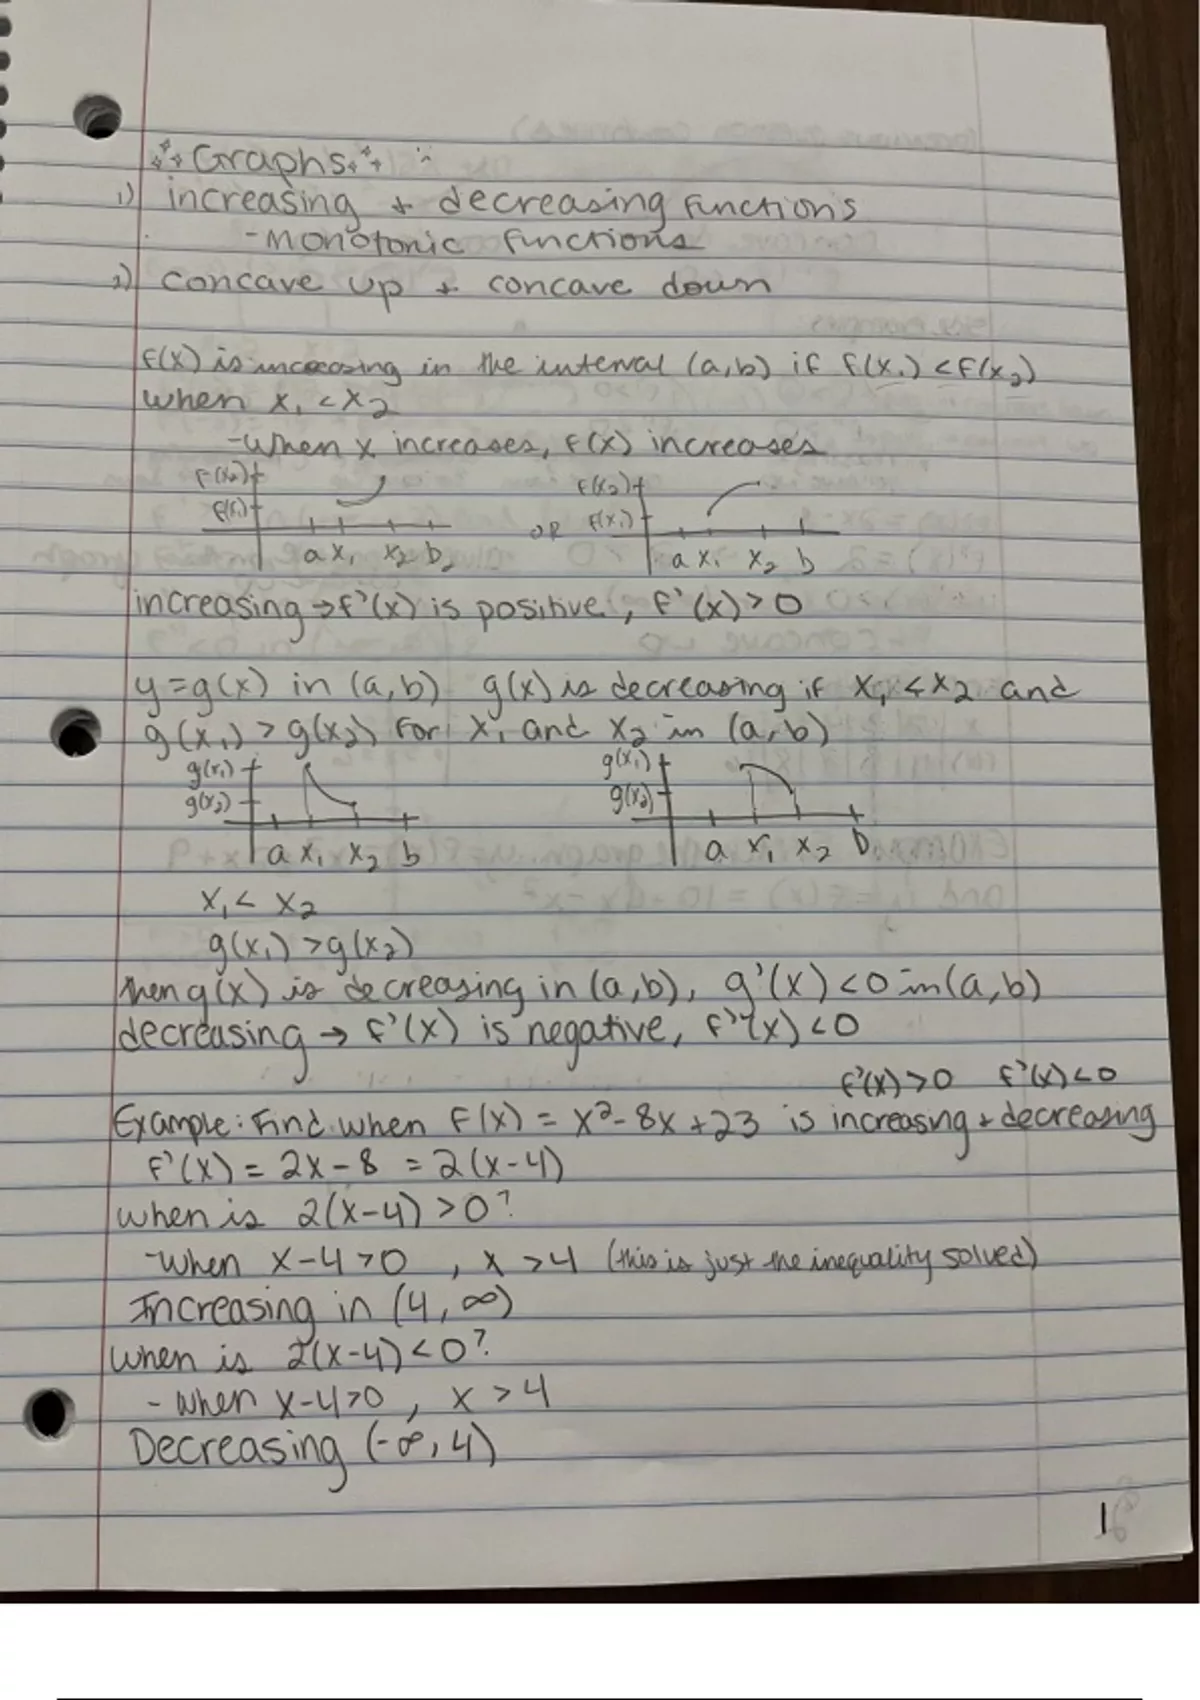 Graphs
1) increasing + decreasing functions
- monotonic functions
2) concave up + concave down
f(x) is increasing in the interval (a,b) if f(x₁) < f(x₂)
when x₁ < x₂
- when x increases, f(x) increases
f(x₂) f(x₂)
f(x₁) or f(x₁)
a x₁ x₂ b a x₁ x₂ b
increasing → f'(x) is positive, f'(x) > 0
y = g(x) in (a,b) g(x) is decreasing if x₁ < x₂ and
g(x₁) > g(x₂) for x₁ and x₂ in (a,b)
g(x₁) g(x₁)
g(x₂) g(x₂)
a x₁ x₂ b a x₁ x₂ b
x₁ < x₂
g(x₁) > g(x₂)
then g(x) is decreasing in (a,b), g'(x) < 0 in (a,b)
decreasing → f'(x) is negative, f'(x) < 0
f'(x) > 0 f'(x) < 0
Example: Find when f(x) = x² - 8x + 23 is increasing + decreasing
f'(x) = 2x - 8 = 2(x-4)
when is 2(x-4) > 0?
- when x-4 > 0, x > 4 (this is just the inequality solved)
Increasing in (4, ∞)
when is 2(x-4) < 0?
- when x-4 > 0, x > 4
Decreasing (-∞, 4)
1